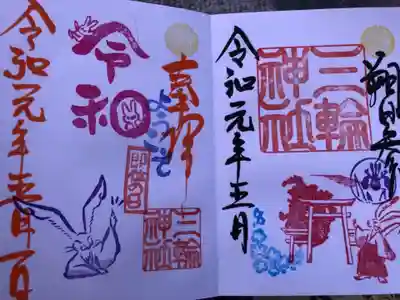 朔日参り
三輪神社
令和元年五月
奉拝
令和
即位の日
三輪神社
令和元年五月一日